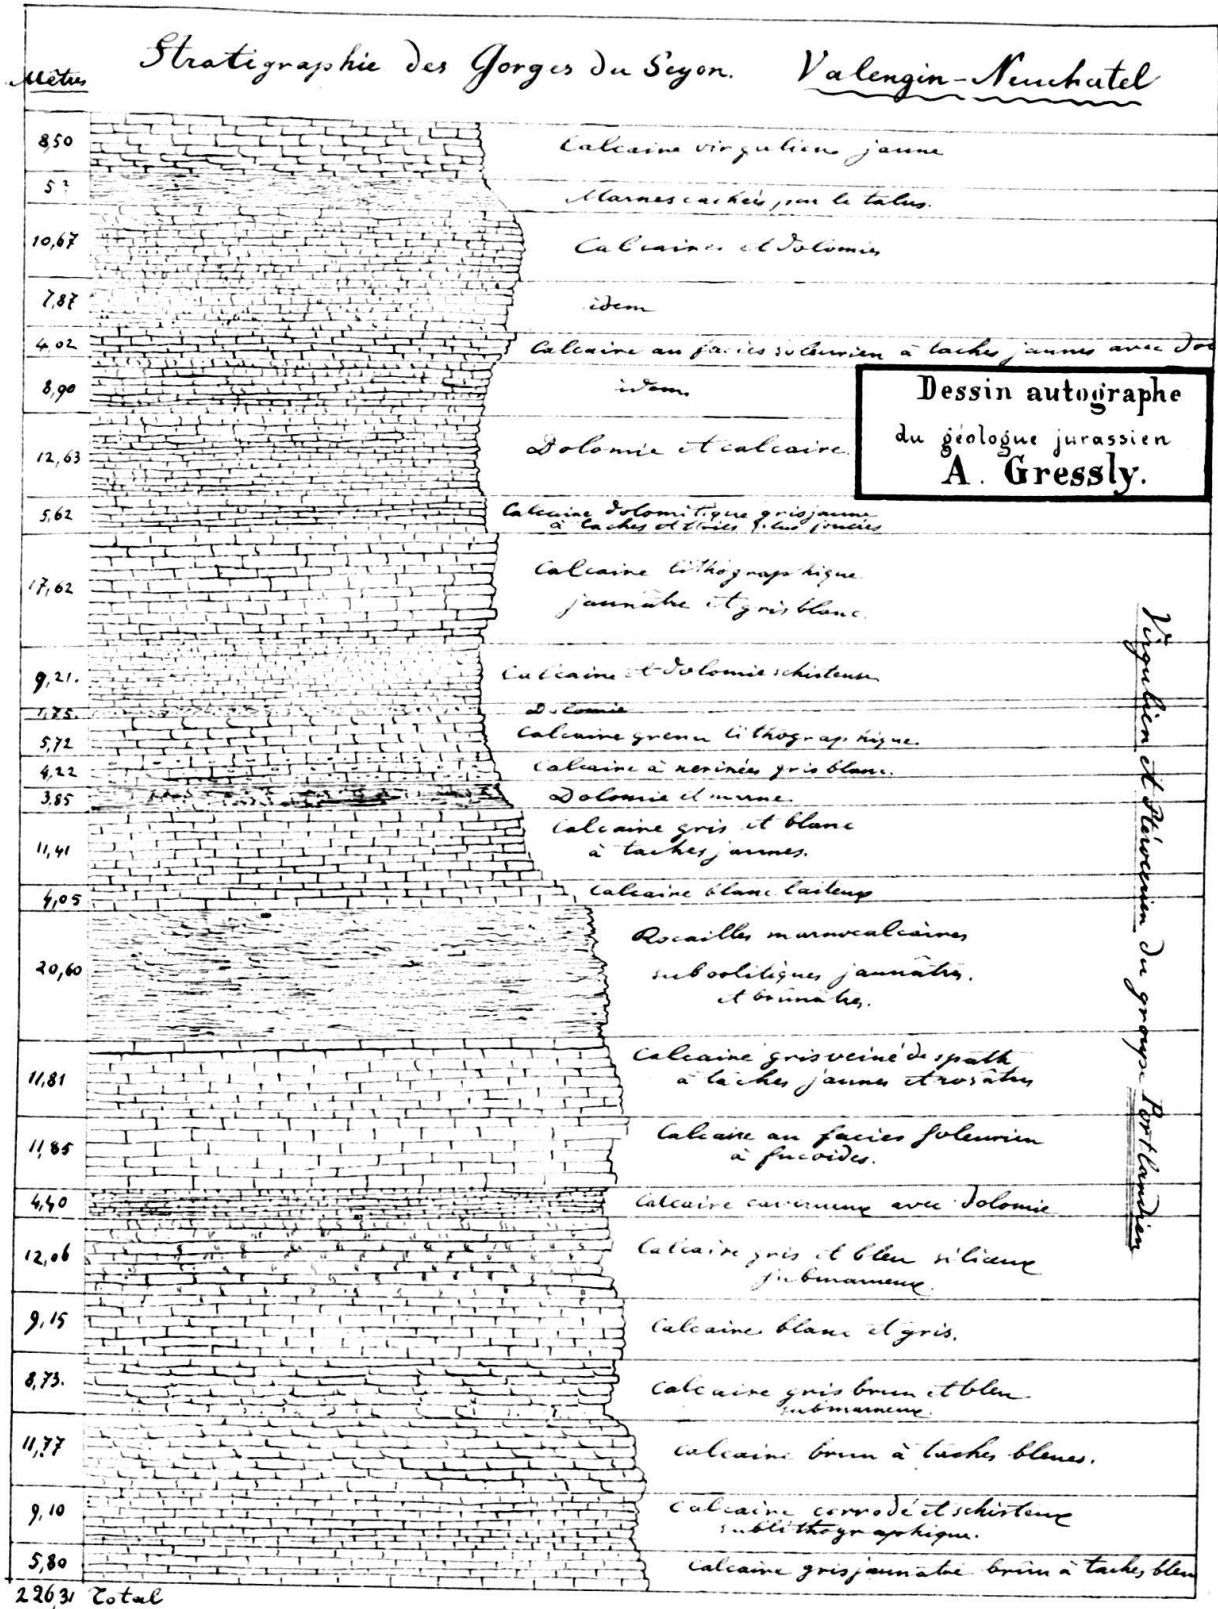 Stratigraphie des Gorges du Seyon. Valengin-Neuchatel
Mètres
8,50 Calcaire virgulien jaune
5? Marnes cachées par le talus.
10,67 Calcaires et dolomies
7,87 idem
4,02 Calcaire au facies soleurien à taches jaunes avec do
8,90 idem
Dessin autographe
du géologue jurassien
A. Gressly.
12,63 Dolomie et calcaire.
5,62 Calcaire dolomitique gris jaune
à taches et plus foncées
17,62 Calcaire lithographique
jaunâtre et gris blanc.
9,21. Calcaire et dolomie schisteuse
1,75. Dolomie
5,72 Calcaire grenu lithographique.
4,22 Calcaire à nerinées gris blanc.
3,85 Dolomie et marne.
11,41 Calcaire gris et blanc
à taches jaunes.
4,05 Calcaire blanc laiteux
20,60 Rocailles marnocalcaires
suboolitiques jaunâtres.
et brunâtres.
11,81 Calcaire gris veiné de spath
à taches jaunes et rosâtres
11,85 Calcaire au facies soleurien
à fucoides.
4,40 Calcaire caverneux avec dolomie
12,06 Calcaire gris et bleu siliceux
submarneux.
9,15 Calcaire blanc et gris.
8,73. Calcaire gris brun et bleu
submarneux.
11,77 Calcaire brun à taches bleues.
9,10 Calcaire corrodé et schisteux
sublithographique.
5,80 Calcaire gris jaunâtre brun à taches bleu
226,31 Total
Virgulien et Ptérocerien du groupe Portlandien